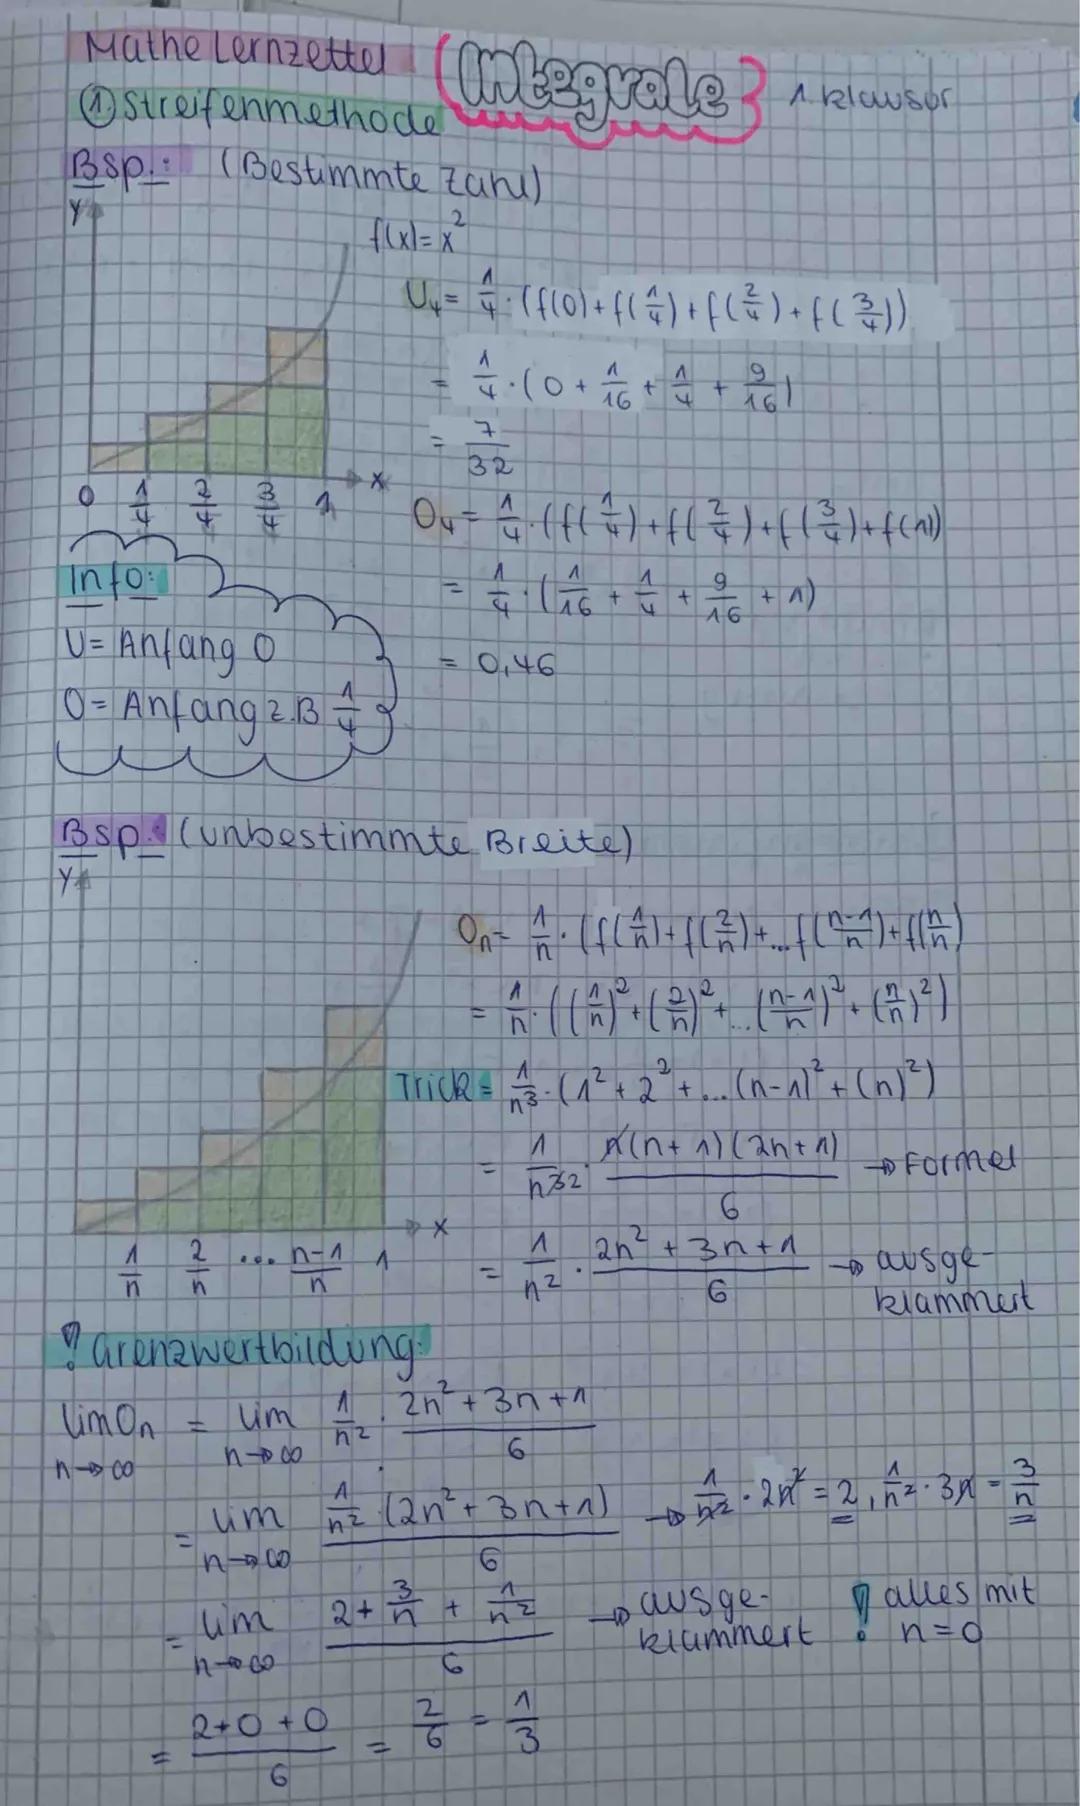 Mathe Lernzettel Integrale 1. Klausur
① Streifenmethode
Bsp.: (Bestimmte Zahl)
y
f(x)=x²
U₄= 1/4 · (f(0)+f(1/4)+f(2/4)+f(3/4))
= 1/4 · (0 + 1/16 + 1/4 + 9/16)
= 7/32
0 1/4 2/4 3/4 1 x
O₄= 1/4 · (f(1/4)+f(2/4)+f(3/4)+f(1))
= 1/4 · (1/16 + 1/4 + 9/16 + 1)
= 0,46
Info:
U= Anfang 0
O= Anfang z.B 1/4
Bsp.: (unbestimmte Breite)
y
Oₙ= 1/n · (f(1/n)+f(2/n)+...f((n-1)/n)+f(n/n)
= 1/n · ((1/n)²+(2/n)²+...((n-1)/n)²+(n/n)²)
Trick= 1/n³ · (1²+2²+...(n-1)²+(n)²)
= 1/n³² · n(n+1)(2n+1)/6 → Formel
1/n 2/n ... (n-1)/n 1 x
= 1/n² · (2n²+3n+1)/6 → ausge-
klammert
! Grenzwertbildung:
lim Oₙ = lim 1/n² · (2n²+3n+1)/6
n→∞ n→∞
= lim (1/n² · (2n²+3n+1))/6 → 1/n² · 2n² = 2, 1/n² · 3n = 3/n
n→∞
= lim (2 + 3/n + 1/n²)/6 → ausge-
klammert ! alles mit
n→∞ n=0
= (2+0+0)/6 = 2/6 = 1/3